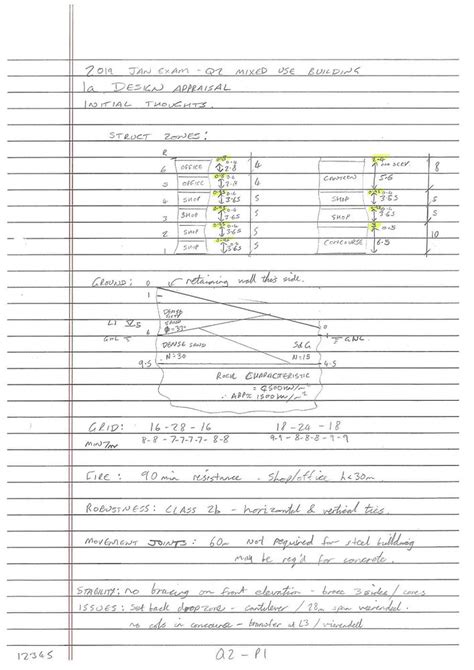 2019 JAN EXAM - Q2 MIXED USE BUILDING
1a DESIGN APPRAISAL
INITIAL THOUGHTS.
STRUCT ZONES:
R
6 OFFICE 2.8 4
5 OFFICE 4
4 SHOP 3.65 5
3 SHOP 3.65 5
2 SHOP 3.65 5
1 SHOP 3.65 5
CANTEEN 5.6 8
SHOP 3.65 5
SHOP 3.65 5
CONCOURSE 6.5 10
GROUND: 0 retaining wall this side.
1
DENSE
SAND
DENSE SAND
N=30
S&G
N=15
0
1
GWL
9.5
4.5
ROCK CHARACTERISTIC
GRID: 16-28-16 18-24-18
8-8-7-7-7-7-8-8 9-9-8-8-8-9-9
FIRE: 90 min resistance - Shop/office h<30m.
ROBUSTNESS: CLASS 2b - horizontal & vertical ties.
MOVEMENT JOINTS: 60m Not required for steel building
may be req'd for concrete.
STABILITY: no bracing on front elevation - brace 3 sides / cores
ISSUES: Set back - cantilever / 28m span vierendeel.
no cols in concourse - transfer at L3 / vierendeel
12345
Q2-P1